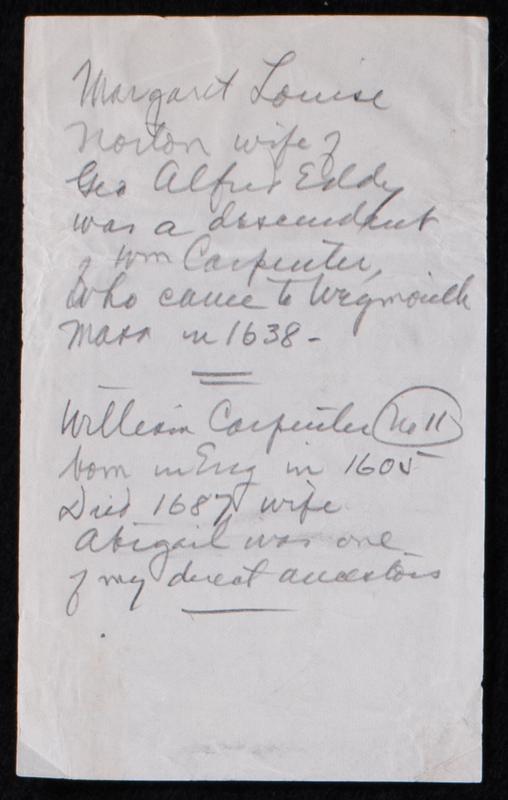 Margaret Louise
Norton wife of
Geo Alfred Eddy
was a descendant
of Wm Carpenter,
who came to Weymouth
Mass in 1638 -
William Carpenter No 11
born in Eng in 1605
Died 1687, wife
Abigail was one
of my direct ancestors